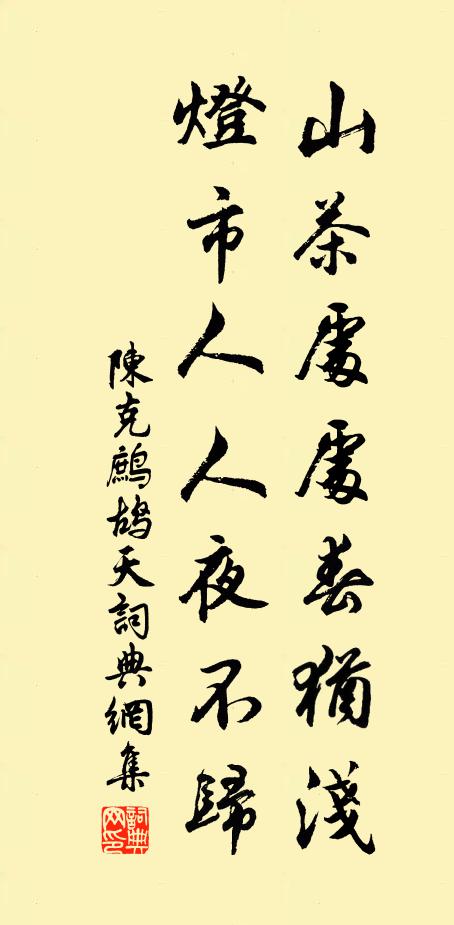 山茶處處春猶淺
燈市人人夜不歸
陳克鷓鴣天詞典網集
詞典網印